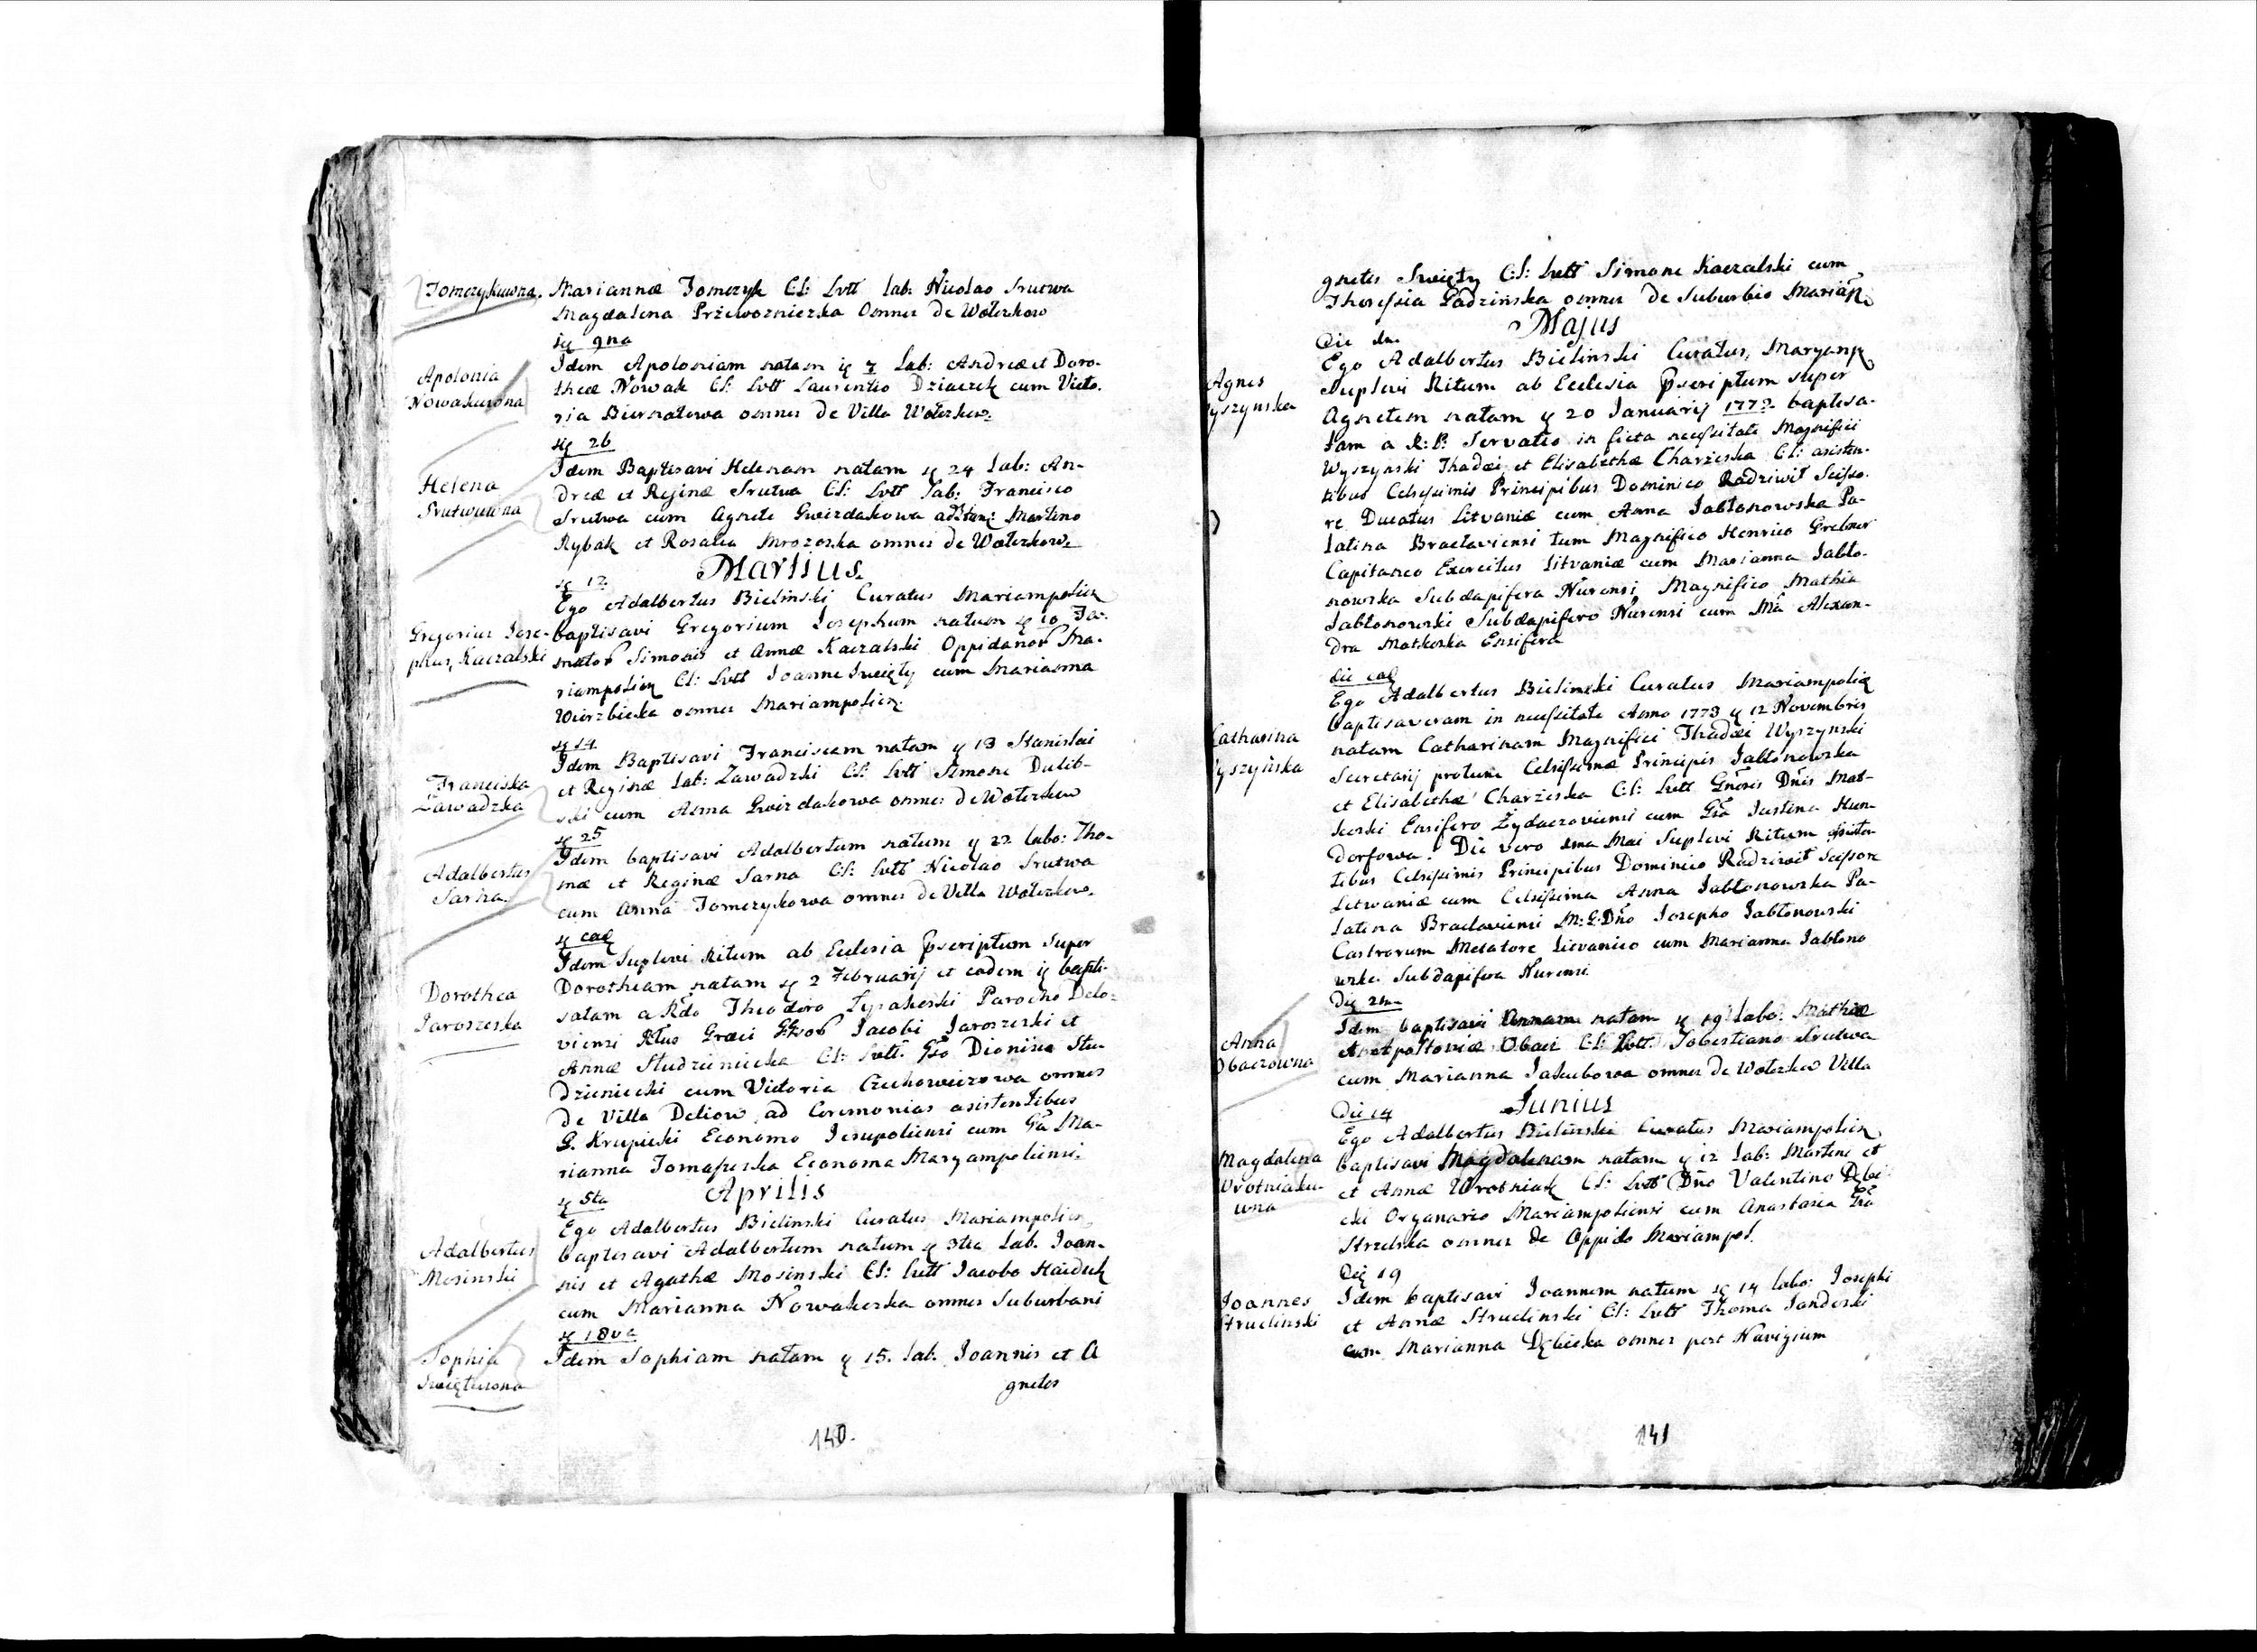 Tomczykuwna. Mariannæ Tomczyk CS: Lvtt lab: Nicolao Srutwa
Magdalena Przewozniczka Omnes de Wołczkow
9na
Apolonia
Nowakuwna
Idem Apoloniam natam 7 Lab: Andreæ et Doro-
theæ Nowak CS: Lvtt Laurentio Dziaczek cum Victo.
ria Biernatowa omnes de Villa Wołczkow.
26
Helena
Srutwuwna
Idem Baptisavi Helenam natam 24 Lab: An-
dreæ et Reginæ Srutwa CS: Lvtt Lab: Francisco
Srutwa cum Agnete Gwizdakowa Martino
Rybak et Rosalia Mrozoska omnes de Wołczkow
Martius.
12
Gregorius Jose-
phus Kaczalski
Ego Adalbertus Bielinski Curatus Mariampolien
baptisavi Gregorium Josephum natum 10 Fa:
Simonis et Annæ Kaczalski Oppidanor Ma.
riampolien CS: Lvtt Joanne Swięty cum Marianna
Wierzbicka omnes Mariampolien.
14
Franciska
Zawadzka
Idem Baptisavi Franciscam natam 13 Stanislai
et Reginæ Lab: Zawadzki CS: Lvtt Simone Dulib-
ski cum Anna Gwizdakowa omnes de Wołczkow
25
Adalbertus
Sarna
Idem baptisavi Adalbertum natum 22 labo: Tho-
mæ et Reginæ Sarna CS: Lvtt Nicolao Srutwa
cum Anna Tomczykowa omnes de Villa Wołczkow.
ead
Dorothea
Jaroszeska
Idem Suplevi Ritum ab Ecclesia pscriptum super
Dorotheam natam 2 Februarij et eadem bapti-
satam a Rdo Theodoro Parocho Delo-
viensi Rtus Græci Jacobi Jaroszeski et
Annæ Studzinicka CS: Lvtt: Dionisio Stu-
dzieniecki cum Victoria Czechowiczowa omnes
de Villa Deliow ad Ceremonias asistentibus
G. Krupicki Economo Jesupoliensi cum Ma-
rianna Tomaszeska Economa Maryampoliensi.
Aprilis
5ta
Adalbertus
Mosinski
Ego Adalbertus Bielinski Curatus Mariampolien
baptisavi Adalbertum natum 3tia Lab. Joan-
nis et Agathæ Mosinski CS: Lvtt Jacobo Haiduk
cum Marianna Nowakoska omnes Suburbani
18va
Sophia
Swiętuwna
Idem Sophiam natam 15. Lab. Joannis et A
gnetis
140.
gnetis Swięty CS: Lvtt Simone Kaczalski cum
Theressia Gadzinska omnes de Suburbio Mariãp
Majus
Die 1ma
Agnes
yszynska
Ego Adalbertus Bielinski Curatus, Maryamp
Suplevi Ritum ab Ecclesia pscriptum super
Agnetem natam 20 Januarij 1772 baptisa-
tam a R: P. Servatio in necessitate Magnifici
Wyszynski Thadæi et Elisabethæ Charzeska CS: asisten-
tibus Celsissimis Principibus Dominico Radziwił Scisso-
re Ducatus Litvaniæ cum Anna Jabłonowska Pa-
latina Braclaviensi tum Magnifico Henrico Grebner
Capitaneo Exercitus Litvaniæ cum Marianna Jabło-
nowska Subdapifera Nurensi Magnifico Mathia
Jabłonowski Subdapifero Nurensi cum Mã Alexan-
dra Matkoska Ensifera
die ead
Catharina
yszyńska
Ego Adalbertus Bielinski Curatus Mariampolien
baptisaveram in necessitate Anno 1773 12 Novembris
natam Catharinam Magnifici Thadæi Wyszynski
Secretarij protunc Celsissimæ Principis Jabłonowska
et Elisabethæ Charzeska CS: Lvtt Dnis Mat-
koski Ensifero Żydaczoviensi cum Justina Hun-
dorfowa. Die vero 1ma Mai Suplevi Ritum
tibus Celsissimis Principibus Dominico Radziwił Scissore
Litvaniæ cum Celsissima Anna Jabłonowska Pa-
latina Braclaviensi M: G: Dño Josepho Jabłonowski
Castrorum Metatore Litvanico cum Marianna Jabłono
wska Subdapifera Nurensi
Die 2da
Anna
Obaczowna
Idem baptisavi Annam natam 19 Labo: Mathiæ
et Apolloniæ Obacz CS: Lvtt. Sobestiano Srutwa
cum Marianna Jakubowa omnes de Wołczkow Villa
Junius
Die 14
Magdalena
Wrotniaku-
wna
Ego Adalbertus Bielinski Curatus Mariampolien
baptisavi Magdalenam natam 12 Lab: Martini et
et Annæ Wrotniak CS: Lvtt Dño Valentino Dębi-
cki Organario Mariampoliensi cum Anastasia
Strzelska omnes de Oppido Mariampol.
Die 19
Joannes
Struclinski
Idem baptisavi Joannem natum 14 labo: Josephi
et Annæ Struclinski CS: Lvtt Thoma Sandoski
cum Marianna Dębicka omnes post Navigium
141